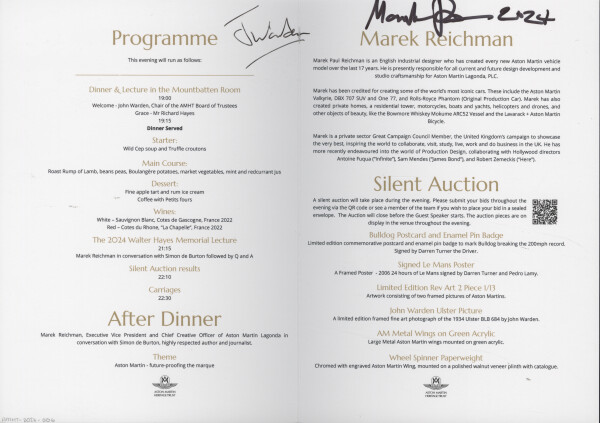 Programme
J Warden
This evening will run as follows:
Dinner & Lecture in the Mountbatten Room
19:00
Welcome - John Warden, Chair of the AMHT Board of Trustees
Grace - Mr Richard Hayes
19:15
Dinner Served
Starter:
Wild Cep soup and Truffle croutons
Main Course:
Roast Rump of Lamb, beans peas, Boulangère potatoes, market vegetables, mint and redcurrant jus
Dessert:
Fine apple tart and rum ice cream
Coffee with Petits fours
Wines:
White – Sauvignon Blanc, Cotes de Gascogne, France 2022
Red – Cotes du Rhone, "La Chapelle", France 2022
The 2024 Walter Hayes Memorial Lecture
21:15
Marek Reichman in conversation with Simon de Burton followed by Q and A
Silent Auction results
22:10
Carriages
22:30
After Dinner
Marek Reichman, Executive Vice President and Chief Creative Officer of Aston Martin Lagonda in
conversation with Simon de Burton, highly respected author and journalist.
Theme
Aston Martin - future-proofing the marque
ASTON MARTIN
HERITAGE TRUST
Marek 2024
Marek Reichman
Marek Paul Reichman is an English industrial designer who has created every new Aston Martin vehicle
model over the last 17 years. He is presently responsible for all current and future design development and
studio craftsmanship for Aston Martin Lagonda, PLC.
Marek has been credited for creating some of the world's most iconic cars. These include the Aston Martin
Valkyrie, DBX 707 SUV and One 77, and Rolls-Royce Phantom (Original Production Car). Marek has also
created private homes, a residential tower, motorcycles, boats and yachts, helicopters and drones, and
other objects of beauty, like the Bowmore Whiskey Mokume ARC52 Vessel and the Lavarack + Aston Martin
Bicycle.
Marek is a private sector Great Campaign Council Member, the United Kingdom's campaign to showcase
the very best, inspiring the world to collaborate with, visit, study, live, work and do business in the UK. He has
more recently endeavoured into the world of Production Design, collaborating with Hollywood directors
Antoine Fuqua ("Infinite"), Sam Mendes ("James Bond"), and Robert Zemeckis ("Here").
Silent Auction
A silent auction will take place during the evening. Please submit your bids throughout the
evening via the QR code or see a member of the team if you wish to place your bid in a sealed
envelope. The Auction will close before the Guest Speaker starts. The auction pieces are on
display in the venue throughout the evening.
Bulldog Postcard and Enamel Pin Badge
Limited edition commemorative postcard and enamel pin badge to mark Bulldog breaking the 200mph record.
Signed by Darren Turner the Driver.
Signed Le Mans Poster
A Framed Poster - 2006 24 hours of Le Mans signed by Darren Turner and Pedro Lamy.
Limited Edition Rev Art 2 Piece 1/13
Artwork consisting of two framed pictures of Aston Martins.
John Warden Ulster Picture
A limited edition framed fine art photograph of the 1934 Ulster BLB 684 by John Warden.
AM Metal Wings on Green Acrylic
Large Metal Aston Martin wings mounted on green acrylic.
Wheel Spinner Paperweight
Chromed with engraved Aston Martin Wing, mounted on a polished walnut veneer plinth with catalogue.
ASTON MARTIN
HERITAGE TRUST